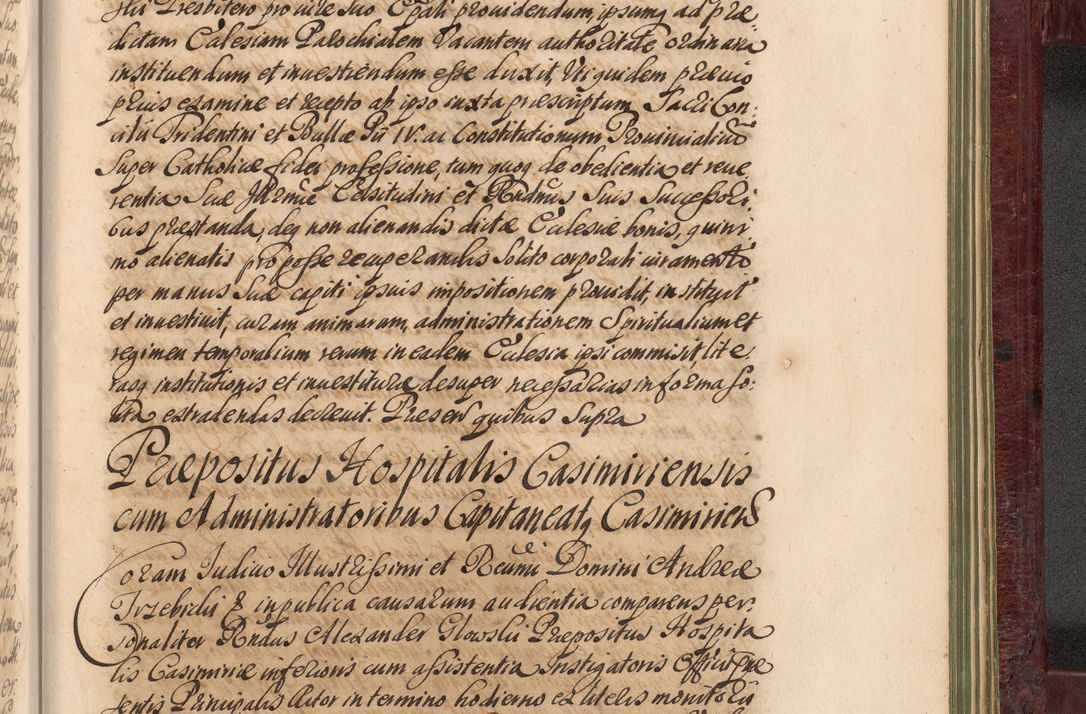 ski Presbitero pro iure suo Cqali prouidendum, ipsumq ad præ
dictam Ecclesiam Parochialem Vacantem authoritate ordinaria
instituendum et inuestiendum esse duxit, Uti quidem præuio
prius examine et recepto ab ipso iuxta præscriptum Sacri Con:
cilii Tridentini et Bullæ Pii IV. ac Constitutionum Prouincialium
super Catholicæ fidei professione, tum quoq de obedientia et reue
rentia Suæ Illrmæ Celsitudini et Rndmis Suis Successori,
bus præstanda, deq non alienandis dictæ Ecclesiæ bonis, quini
mo alienatis pro posse recuperandis solito corporali iuramento
per manus Suæ capiti ipsius impositionem prouidit, instituit
et inuestiuit, curam animarum, administrationem Spiritualium et
regimen temporalium rerum in eadem Ecclesia ipsi commisit lite:
rasq institutionis et inuestituræ desuper necessarias in forma so:
lita extradendas decreuit. Presen quibus supra
Præpositus Hospitalis Casimiriensis
cum Administratoribus Capitaneatq Casimirien
Coram Iudicio Illustrissimi et Reumi Domini Andreæ
Trzebicki & in publica causarum audientia comparens per:
sonaliter Rndus Alexander Glowski Præpositus Hospita
lis Casimiriæ inferioris cum assistentia Instigatoris Officii præ
sentis Principalis Actor in termino hodierno ex literis monitorii